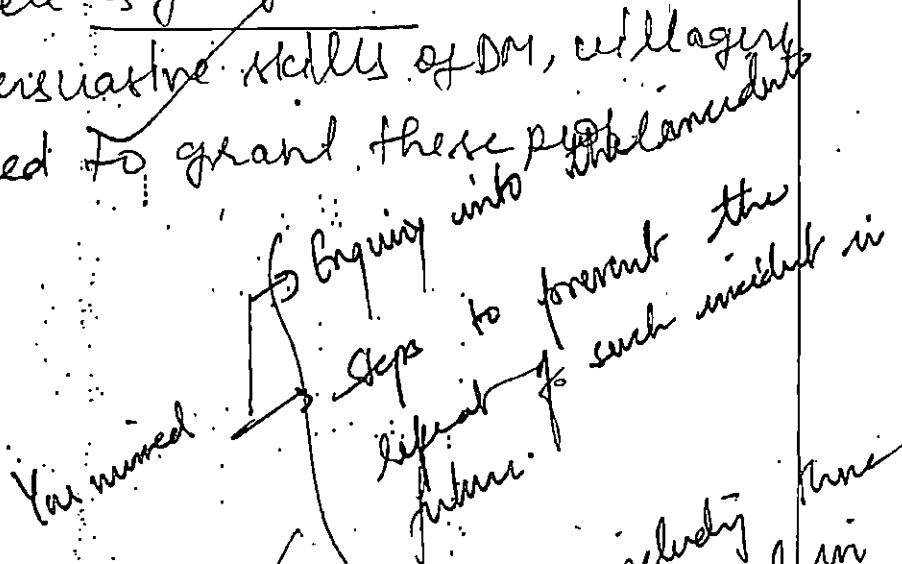 persuasive skills of DM, villagers
ed to grant these
Enquiry into the incident
You missed
steps to prevent the
repeat of such incident in
future.
in